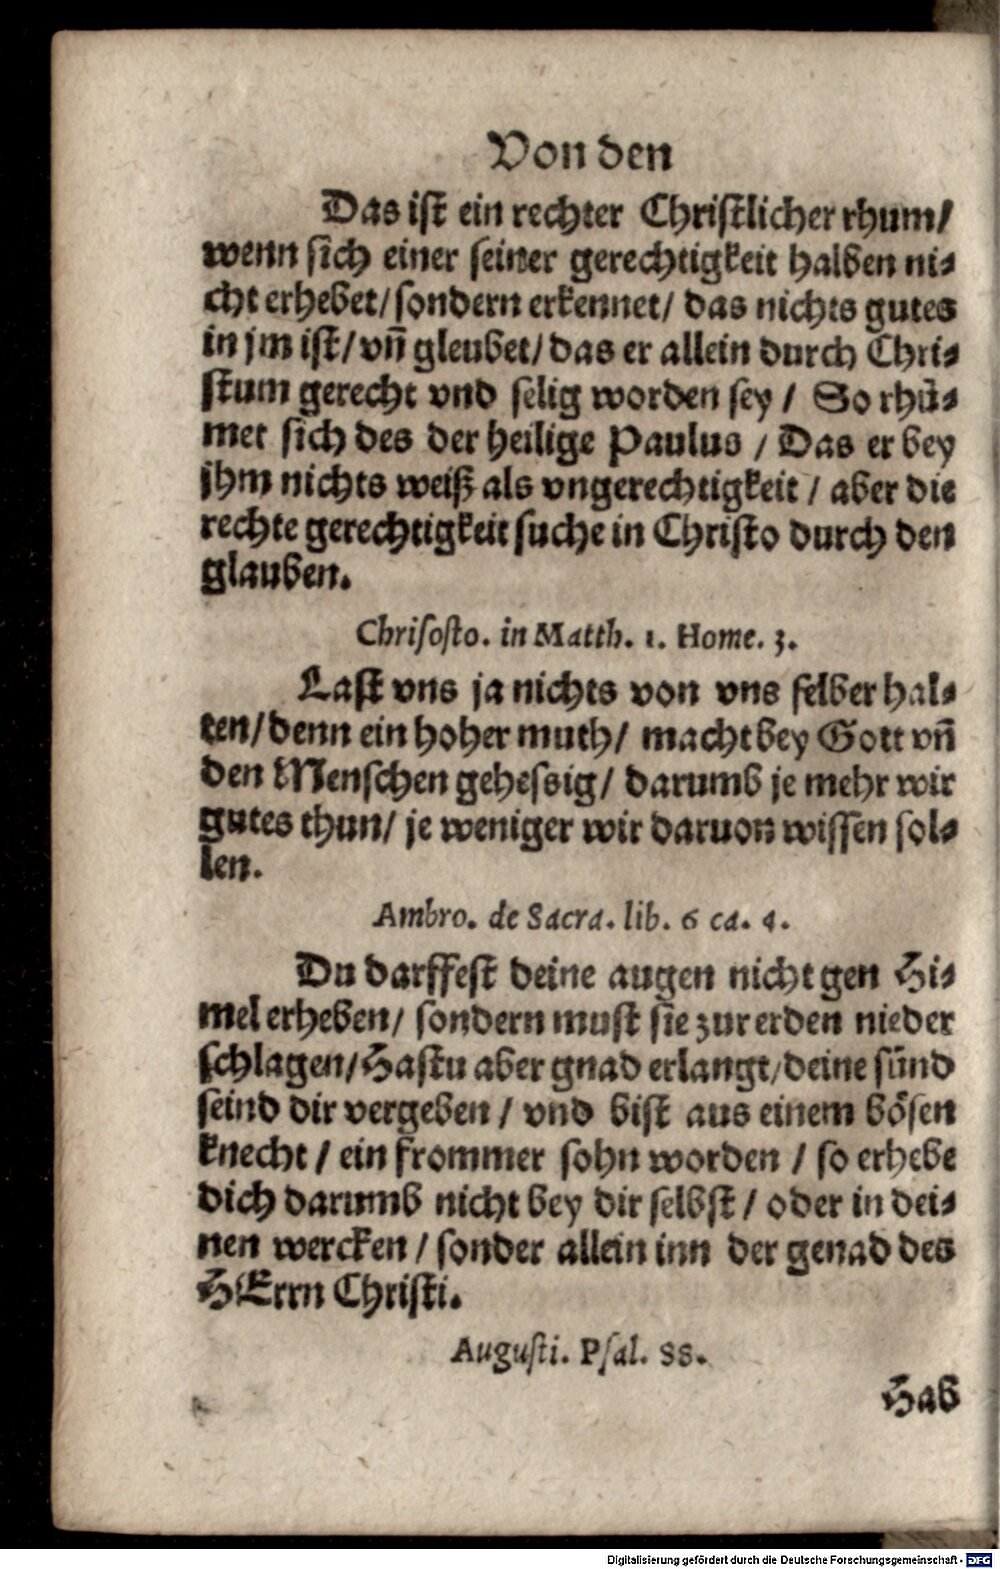 Von den
Das ist ein rechter Christlicher rhum/
wenn sich einer seiner gerechtigkeit halben ni⸗
cht erhebet/ sondern erkennet/ das nichts gutes
in jm ist/ vñ gleubet/ das er allein durch Chri⸗
stum gerecht vnd selig worden sey / So rhuͤ⸗
met sich des der heilige Paulus / Das er bey
jhm nichts weiß als vngerechtigkeit / aber die
rechte gerechtigkeit suche in Christo durch den
glauben.
Chrisosto. in Matth. 1. Home. 3.
Last vns ja nichts von vns selber hal⸗
ten/ denn ein hoher muth/ macht bey Gott vñ
den Menschen gehessig/ darumb je mehr wir
gutes thun/ je weniger wir daruon wissen sol⸗
len.
Ambro. de Sacra. lib. 6 ca. 4.
Du darffest deine augen nicht gen Hi⸗
mel erheben/ sondern must sie zur erden nieder
schlagen/ Hastu aber gnad erlangt/ deine suͤnd
seind dir vergeben / vnd bist aus einem boͤsen
knecht / ein frommer sohn worden / so erhebe
dich darumb nicht bey dir selbst / oder in dei⸗
nen wercken / sonder allein inn der genad des
HErrn Christi.
Augusti. Psal. 88.
Hab
Digitalisierung gefördert durch die Deutsche Forschungsgemeinschaft - DFG